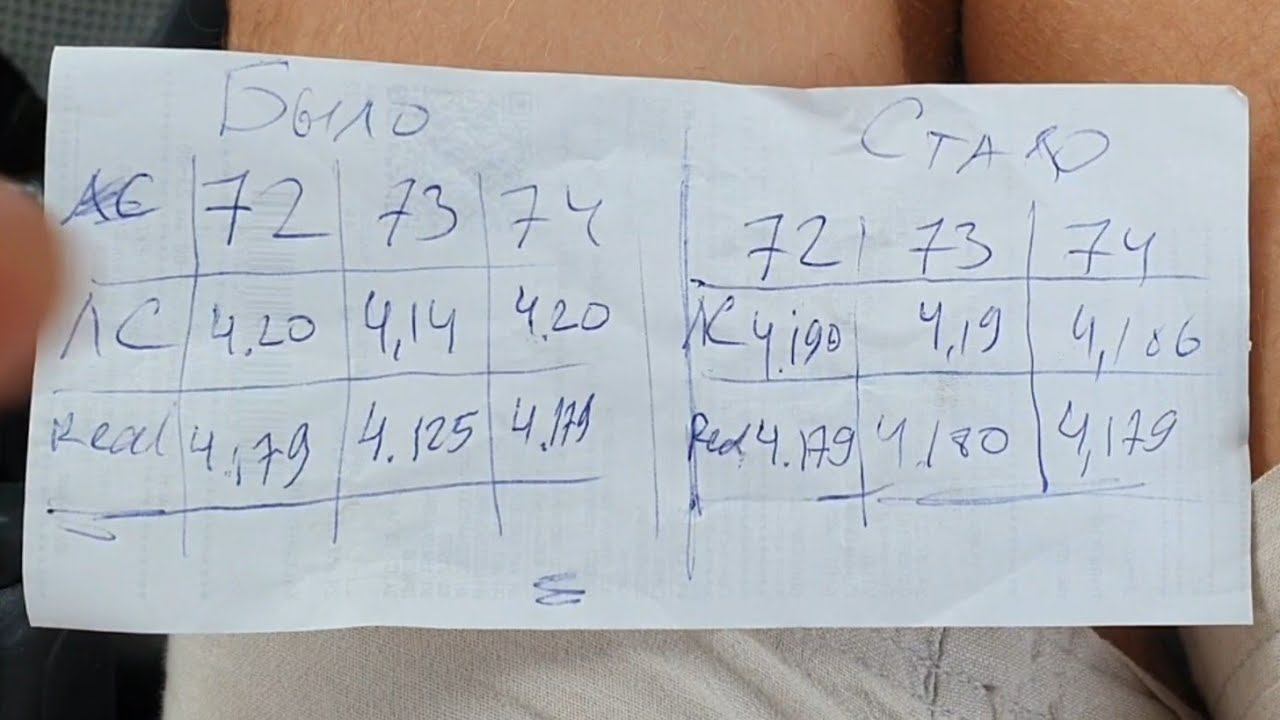 Было
72 73 74
ЛС 4.20 4,14 4.20
Real 4.179 4.125 4.179
Стало
72 73 74
ЛС 4.190 4,19 4,186
Real 4.179 4.180 4,179